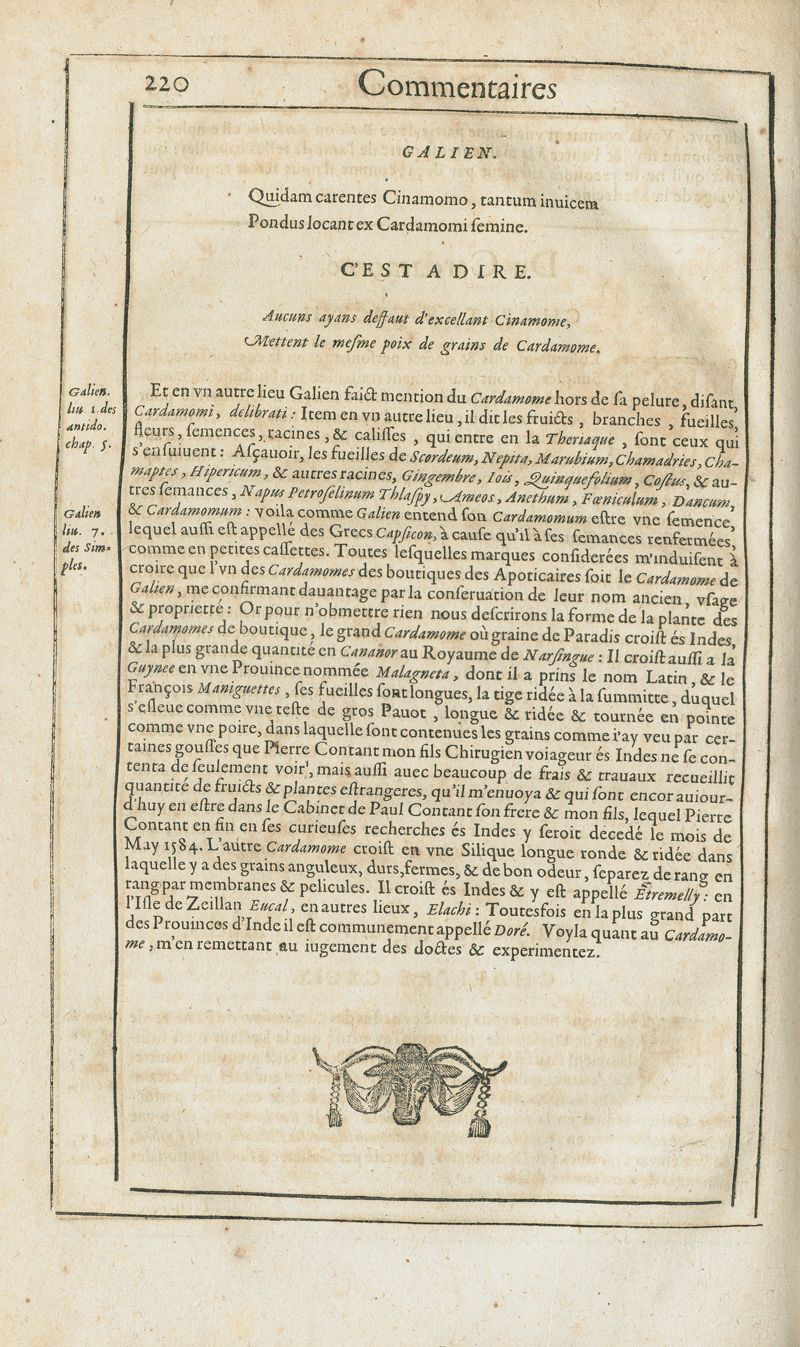 220 Commentaires
GALIEN.
Quidam carentes Cinamomo, tantum inuicem
Pondus locant ex Cardamomi ſemine.
C'EST A DIRE.
Aucuns ayans deffaut d'excellant Cinamome,
Mettent le meſme poix de grains de Cardamome.
Galien.
liu 1. des
antido.
chap. 5.
Et en vn autre lieu Galien faict mention du Cardamome hors de ſa pelure, diſant,
Cardamomi, delibrati: Item en vn autre lieu, il dit les fruicts, branches, fueilles,
fleurs, ſemences, racines, & caliſſes, qui entre en la Theriaque, ſont ceux qui
s'enſuiuent: Aſçauoir, les fueilles de Scordeum, Nepita, Marubium, Chamadries, Cha-
maptes, Hipericum, & autres racines, Gingembre, Iois, Quinquefolium, Coſtus, & au-
tres ſemances, Napus Petroſelinum Thlaſpy, Ameos, Anethum, Fœniculum, Dancum,
& Cardamomum: voila comme Galien entend ſon Cardamomum eſtre vne ſemence,
lequel auſſi eſt appellé des Grecs Capſicon, à cauſe qu'il à ſes ſemances renfermées,
comme en petites caſſettes. Toutes leſquelles marques conſiderées m'induiſent à
croire que l'vn des Cardamomes des boutiques des Apoticaires ſoit le Cardamome de
Galien, me confirmant dauantage par la conſeruation de leur nom ancien, vſage
& proprietté: Or pour n'obmettre rien nous deſcrirons la forme de la plante des
Cardamomes de boutique, le grand Cardamome où graine de Paradis croiſt és Indes,
& la plus grande quantité en Cananor au Royaume de Narſingue: Il croiſt auſſi a la
Guynee en vne Prouince nommée Malagneta, dont il a prins le nom Latin, & le
François Maniguettes, ſes fueilles ſont longues, la tige ridée à la ſummitte, duquel
s'eſleue comme vne teſte de gros Pauot, longue & ridée & tournée en pointe
comme vne poire, dans laquelle ſont contenues les grains comme i'ay veu par cer-
taines gouſſes que Pierre Contant mon fils Chirugien voiageur és Indes ne ſe con-
tenta de ſeulement voir, mais auſſi auec beaucoup de frais & trauaux recueillit
quantité de fruicts & plantes eſtrangeres, qu'il m'enuoya & qui ſont encor auiour-
d'huy en eſtre dans le Cabinet de Paul Contant ſon frere & mon fils, lequel Pierre
Contant en fin en ſes curieuſes recherches és Indes y ſeroit décedé le mois de
May 1584. L'autre Cardamome croiſt en vne Silique longue ronde & ridée dans
laquelle y a des grains anguleux, durs, fermes, & de bon odeur, ſeparez de rang en
rang par membranes & pelicules. Il croiſt és Indes & y eſt appellé Etremelly: en
l'Iſle de Zeillan Eucal, en autres lieux, Elachi: Toutesfois en la plus grand part
des Prouinces d'Inde il eſt communement appellé Doré. Voyla quant au Cardamo-
me, m'en remettant au iugement des doctes & experimentez.
Galien
liu. 7.
des Sim-
ples.